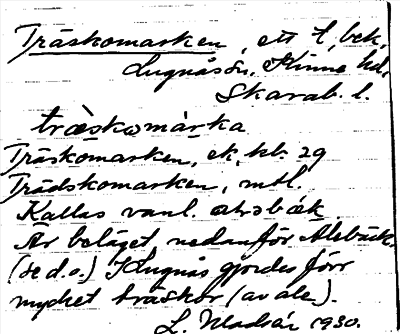 Träskomarken, ett t, bek.
Lugnås sn, Kinne hd,
Skarab. l.
träskomàrka
Träskomarken, ek. kb. 29
Trädskomarken, mtl.
Kallas vanl.
Är beläget nedanför Alebäck.
(se d.o.) I Lugnås gjordes förr
mycket träskor (av ale).
L. 1930.